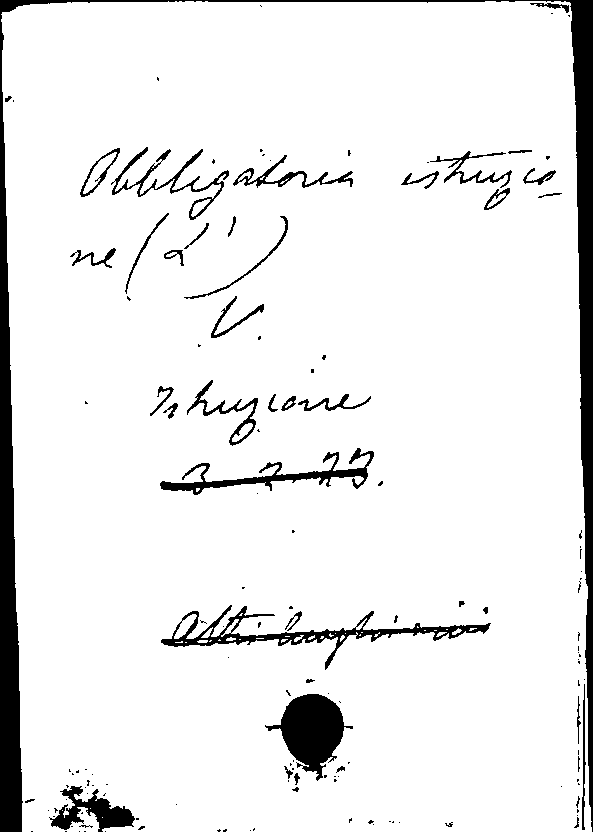 Obbligatoria istruzio-
ne (L')
V.
Istruzione
3 2 73.
Altri luoghi